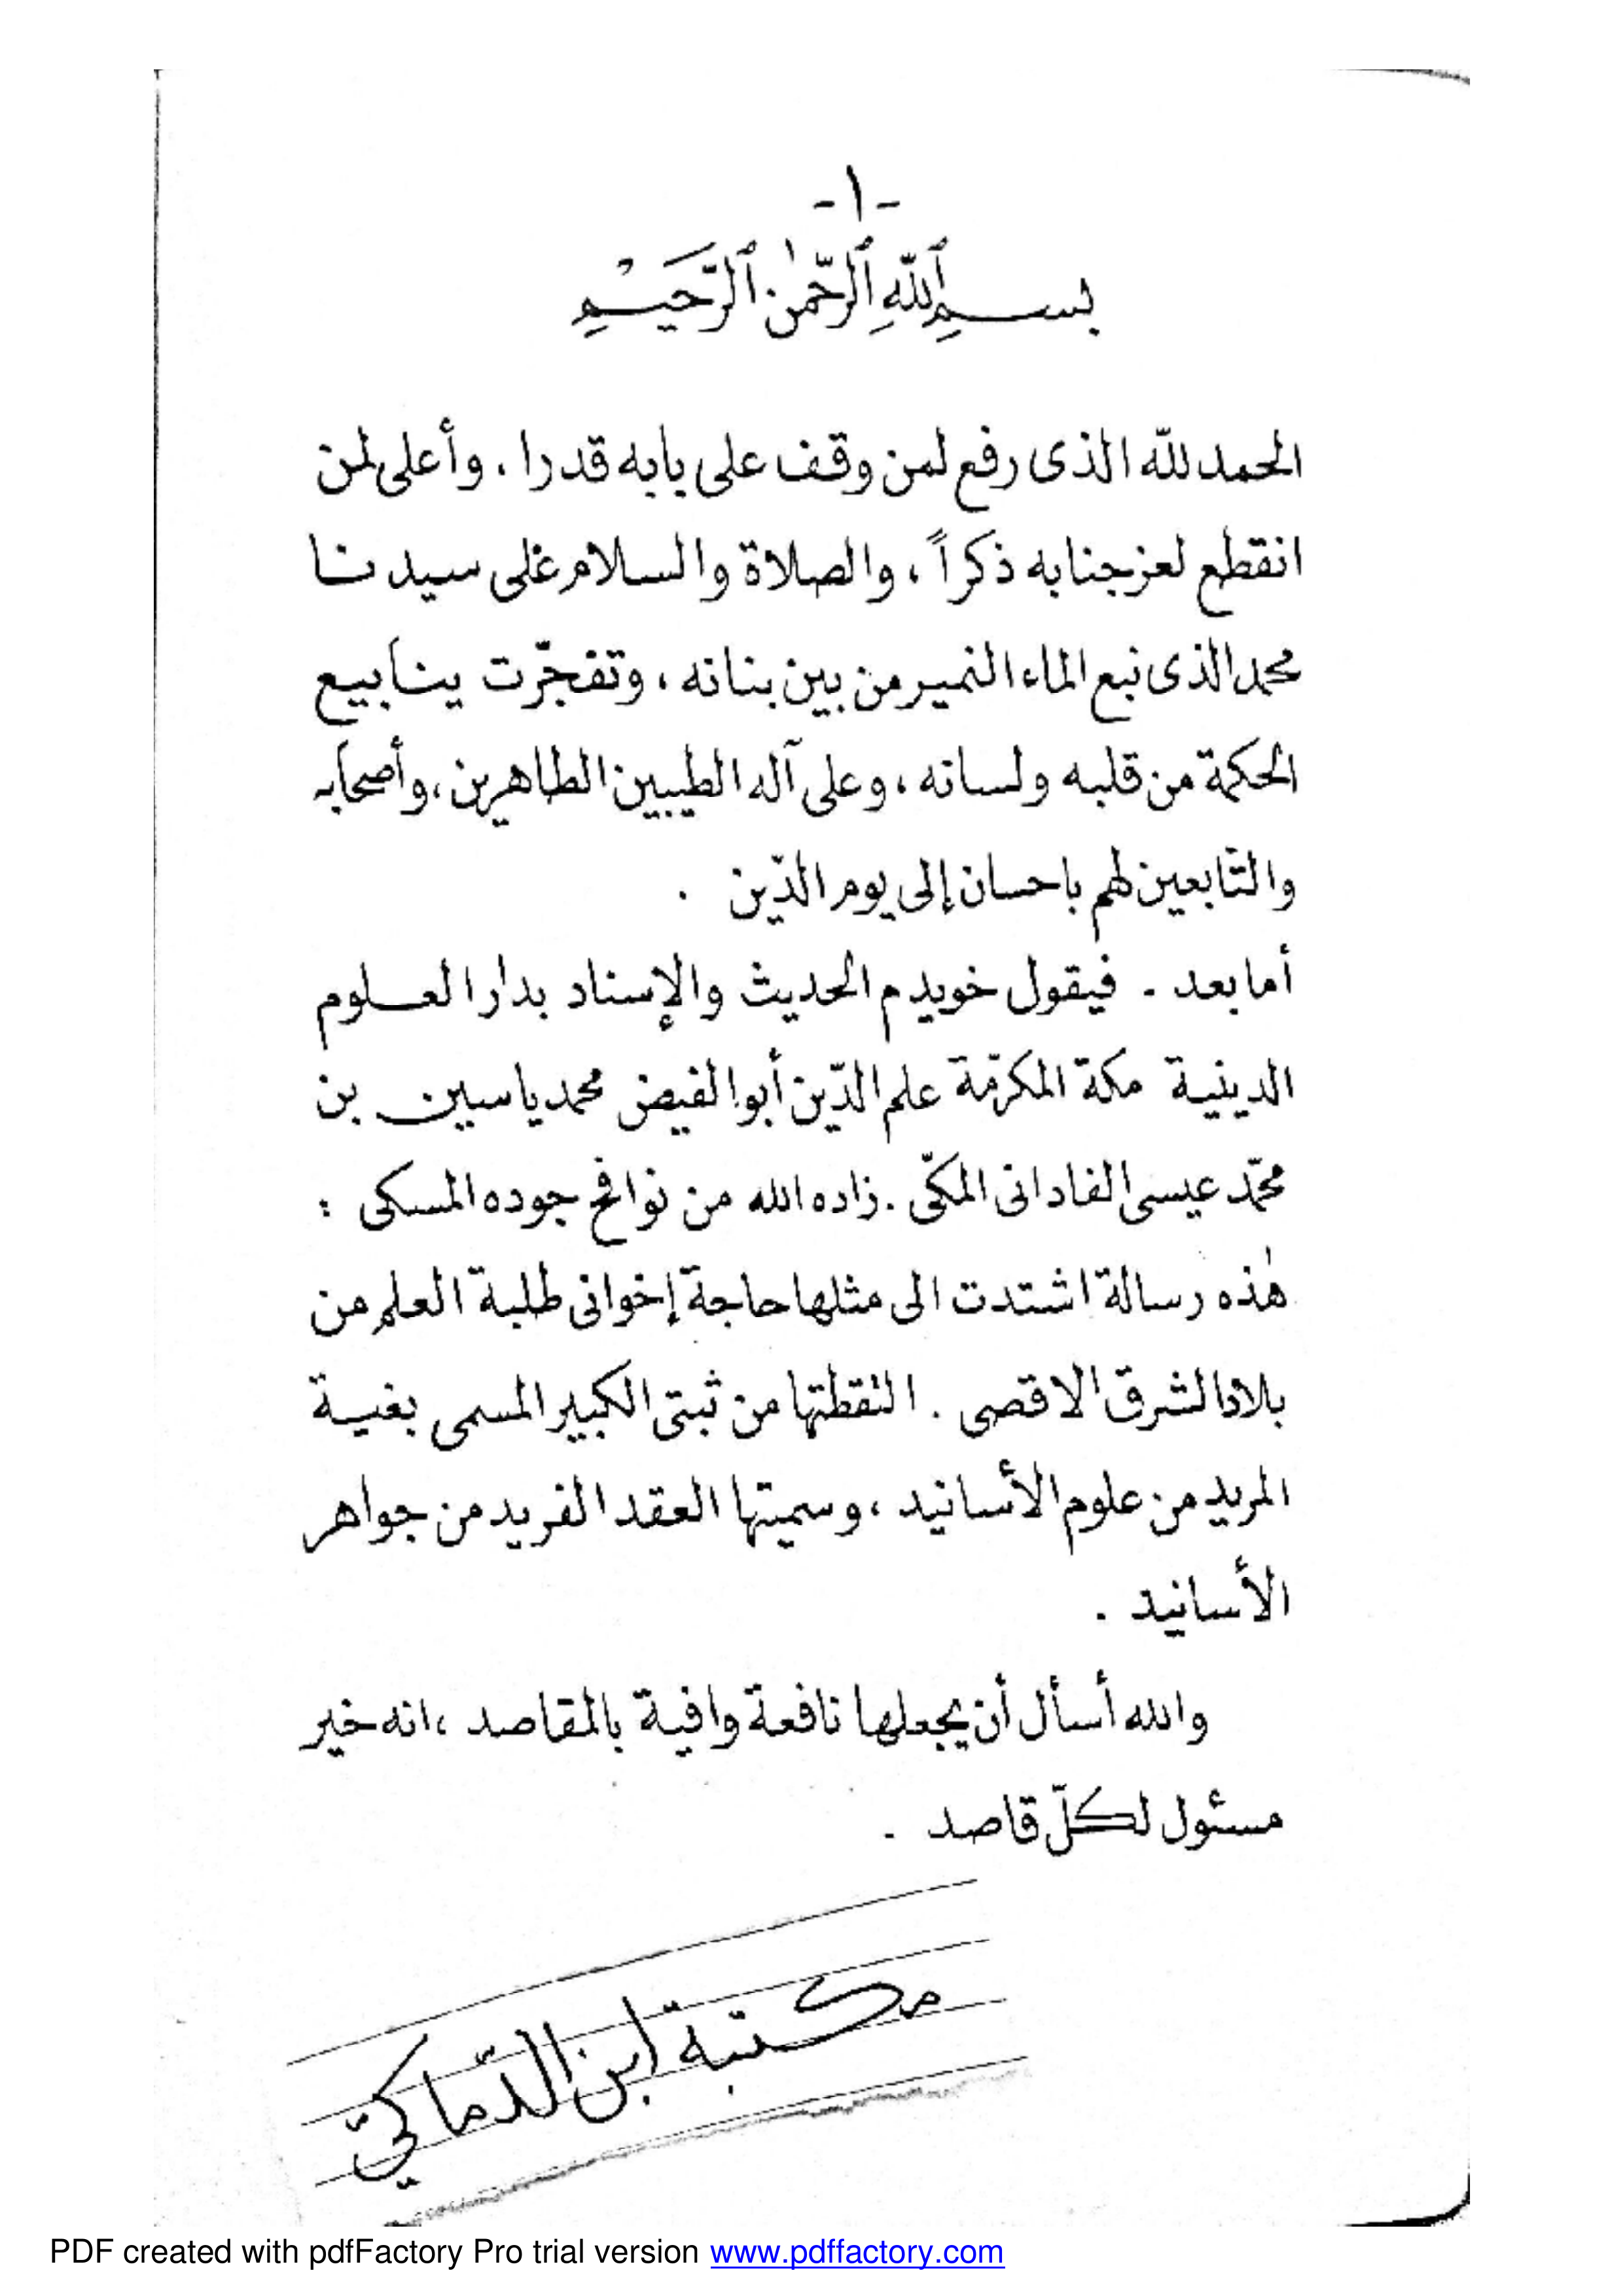 -١-
بسم ٱللّهِ ٱلرَّحمٰن ٱلرَّحَيْمِ
الحمد للّه الذى رفع لمن وقف على بابه قدرا . وأعلى لمن
انقطع لعز جنابه ذكراً ، والصلاة والسلام على سيدنا
محمد الذى نبع الماء النمير من بين بنانه ، وتفجّرت ينابيع
الحكمة من قلبه ولسانه ، وعلى آله الطيبين الطاهرين ، وأصحابه
والتّابعين لهم باحسان إلى يوم الدّين .
أما بعد - فيقول خويدم الحديث والإسناد بدار العلوم
الدينية مكة المكرّمة علم الدّين أبو الفيض محمد ياسين بن
محمّد عيسى الفادانى المكّى . زاده الله من نوافح جوده المسكى :
هٰذه رسالة اشتدت الى مثلها حاجة إخوانى طلبة العلم من
بلاد الشرق الاقصى . التقطتها من ثبتى الكبير المسمى بغية
المريد من علوم الأسانيد ، وسميتها العقد الفريد من جواهر
الأسانيد .
والله أسأل أن يجعلها نافعة وافية بالمقاصد ، انه خير
مسئول لكلّ قاصد .
مكتبة ابن الدّماكيّ
PDF created with pdfFactory Pro trial version www.pdffactory.com